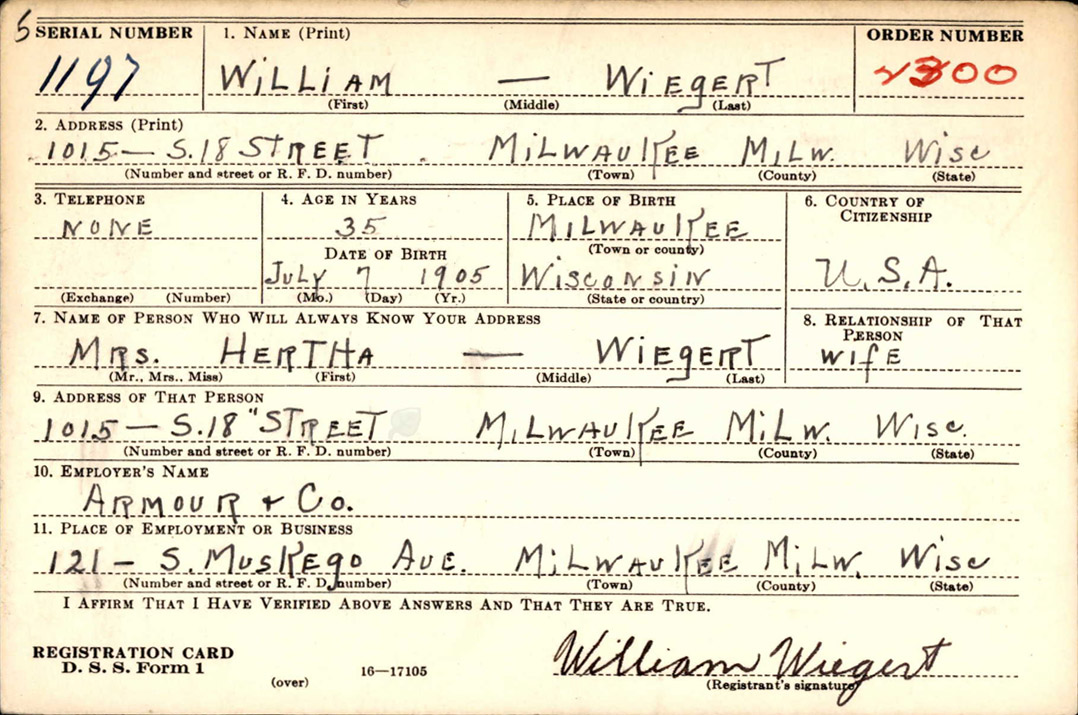 5
SERIAL NUMBER 1. NAME (Print) ORDER NUMBER
1197 WILLIAM — WIEGERT
(First) (Middle) (Last)
2. ADDRESS (Print)
1015 — S. 18 STREET. MILWAUKEE MILW. WISC
(Number and street or R. F. D. number) (Town) (County) (State)
3. TELEPHONE 4. AGE IN YEARS 5. PLACE OF BIRTH 6. COUNTRY OF CITIZENSHIP
NONE 35 MILWAUKEE
DATE OF BIRTH (Town or county)
JULY 7 1905 WISCONSIN U.S.A.
(Exchange) (Number) (Mo.) (Day) (Yr.) (State or country)
7. NAME OF PERSON WHO WILL ALWAYS KNOW YOUR ADDRESS 8. RELATIONSHIP OF THAT PERSON
MRS. HERTHA — WIEGERT WIFE
(Mr., Mrs., Miss) (First) (Middle) (Last)
9. ADDRESS OF THAT PERSON
1015 — S. 18 " STREET MILWAUKEE MILW. WISC.
(Number and street or R. F. D. number) (Town) (County) (State)
10. EMPLOYER'S NAME
ARMOUR + CO.
11. PLACE OF EMPLOYMENT OR BUSINESS
121 — S. MUSKEGO AVE. MILWAUKEE MILW. WISC
(Number and street or R. F. D. number) (Town) (County) (State)
I AFFIRM THAT I HAVE VERIFIED ABOVE ANSWERS AND THAT THEY ARE TRUE.
REGISTRATION CARD
D. S. S. Form 1 16—17105 William Wiegert
(over) (Registrant's signature)